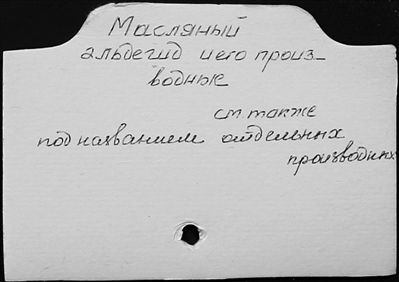 Масляный
альдегид и его произ-
водные
см. также
под названием отдельных
производных